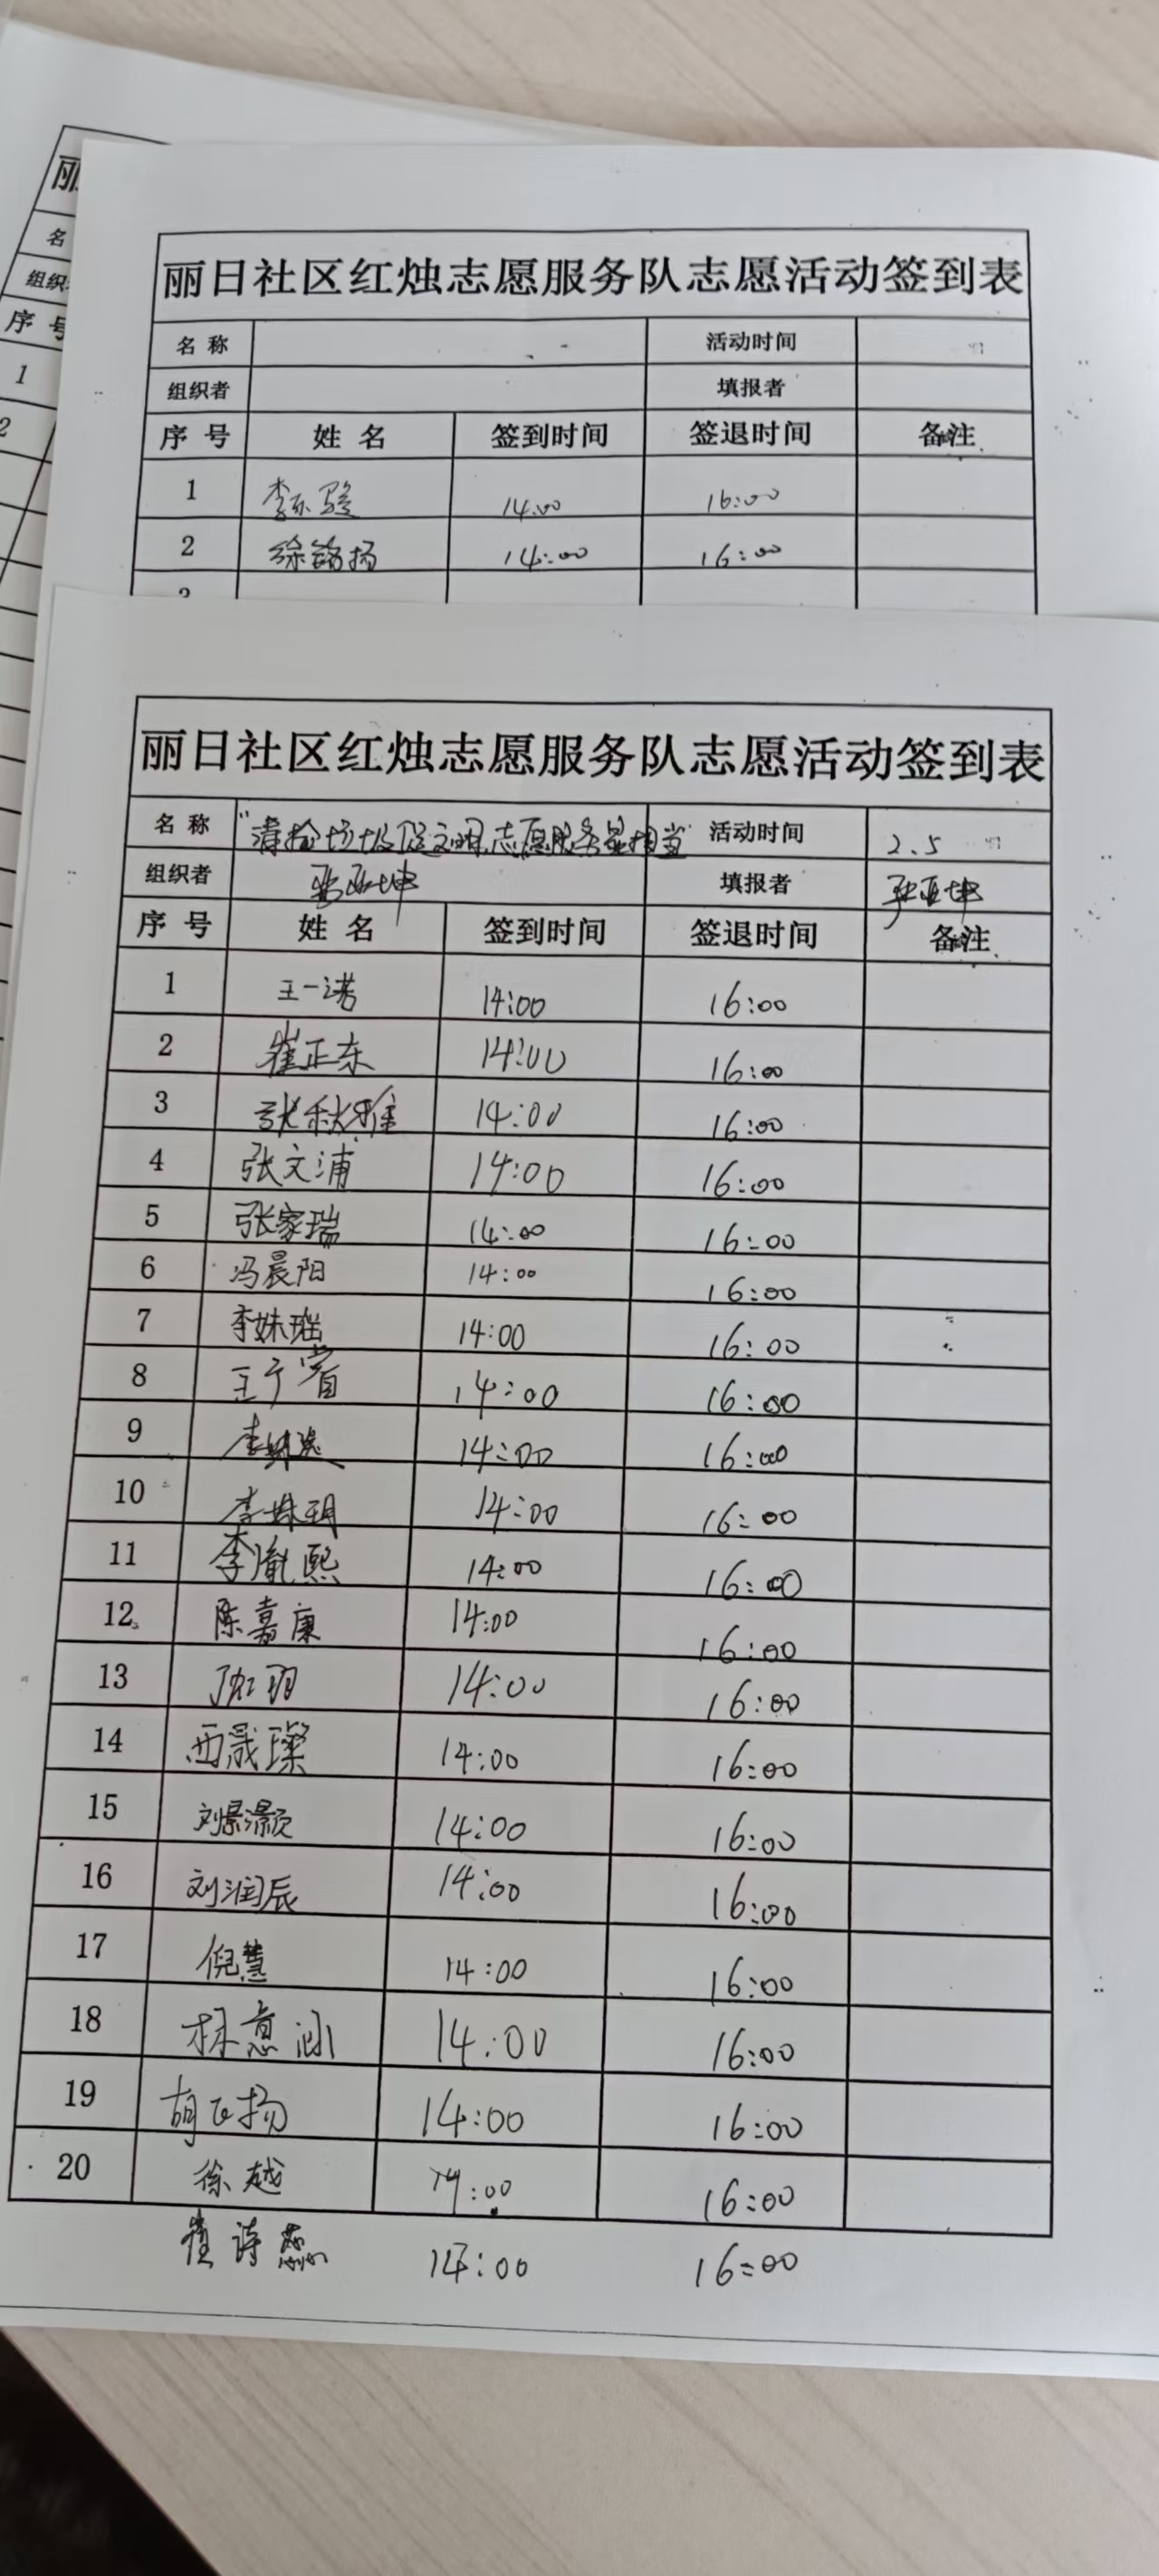 丽
名
组织
序 号
1
2
丽日社区红烛志愿服务队志愿活动签到表
名 称 活动时间
组织者 填报者
序 号 姓 名 签到时间 签退时间 备注
1 李 骏 14:00 16:00
2 徐铭扬 14:00 16:00
3
丽日社区红烛志愿服务队志愿活动签到表
名 称 "清捡垃圾促文明,志愿服务 担当" 活动时间 2.5
组织者 张亚坤 填报者 张亚坤
序 号 姓 名 签到时间 签退时间 备注
1 王一诺 14:00 16:00
2 崔正东 14:00 16:00
3 张秋雅 14:00 16:00
4 张文浦 14:00 16:00
5 张家瑞 14:00 16:00
6 冯晨阳 14:00 16:00
7 李姝瑶 14:00 16:00
8 王予 14:00 16:00
9 李 14:00 16:00
10 李姝玥 14:00 16:00
11 李胤熙 14:00 16:00
12 陈嘉康 14:00 16:00
13 14:00 16:00
14 西晟璨 14:00 16:00
15 刘景灏 14:00 16:00
16 刘润辰 14:00 16:00
17 倪慧 14:00 16:00
18 林意涵 14:00 16:00
19 胡 扬 14:00 16:00
20 徐越 14:00 16:00
崔诗蕊 14:00 16:00